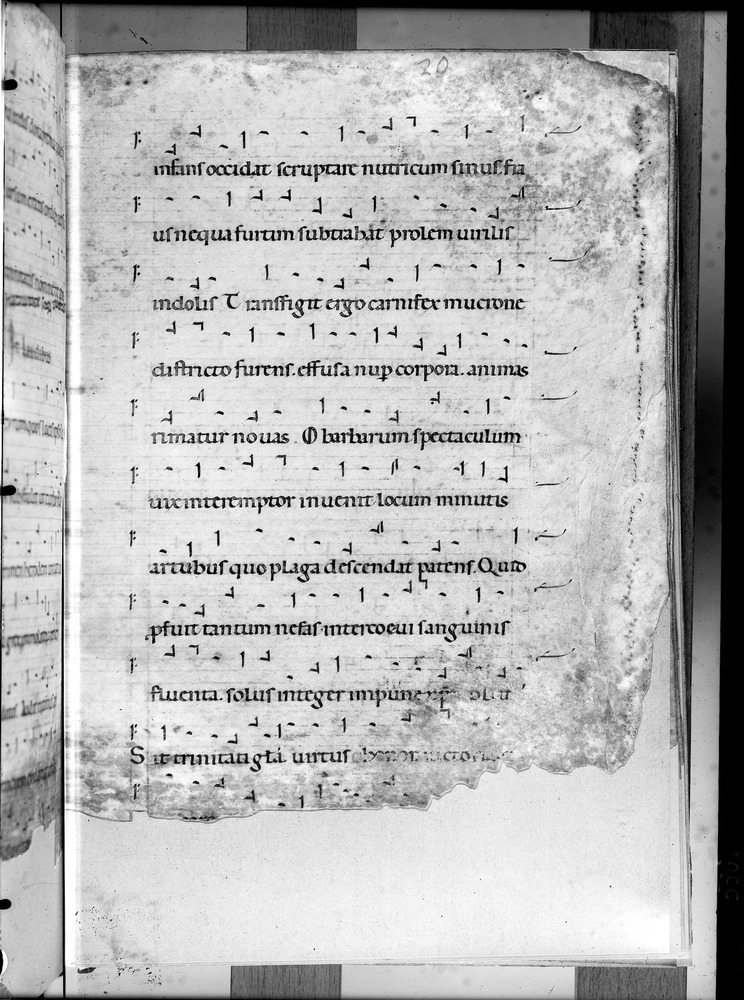 20
infans occidat scruptare nutricum sinus. fra
us nequa furtim subtrahat prolem uirilis
indolis Transfigit ergo carnifex mucrone
districto furens. effusa nuꝑ corpora. animas
rimatur nouas. O barbarum spectaculum
uix interemptor inuenit locum minutis
artubus quo plaga descendat patens. Quid
ꝓfuit tantum nefas. inter coeui sanguinis
fluenta. solus integer impune
Sit trinitati gła. uirtus honor